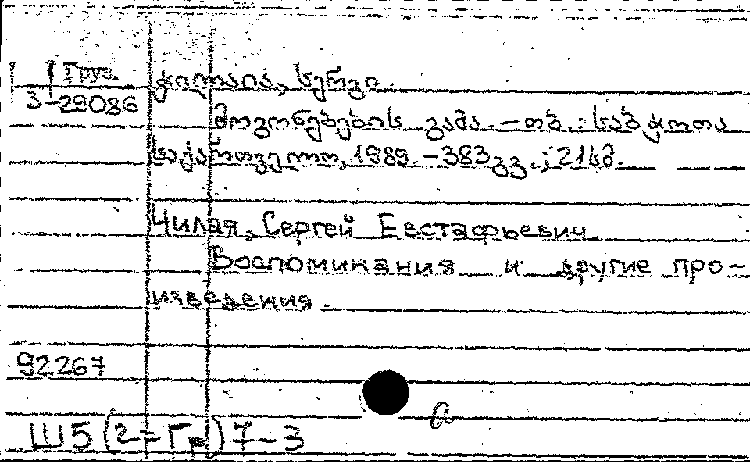 Груз.
3-29086
ჭილაია, სერგი.
მოგონებების გზა. - თბ.: საბჭოთა
საქართველო, 1989. - 383 გვ.; 21 სმ.
Чилая, Сергей Евстафьевич
Воспоминания и другие про-
изведения.
92267
Ш5(2=Гр)7-3